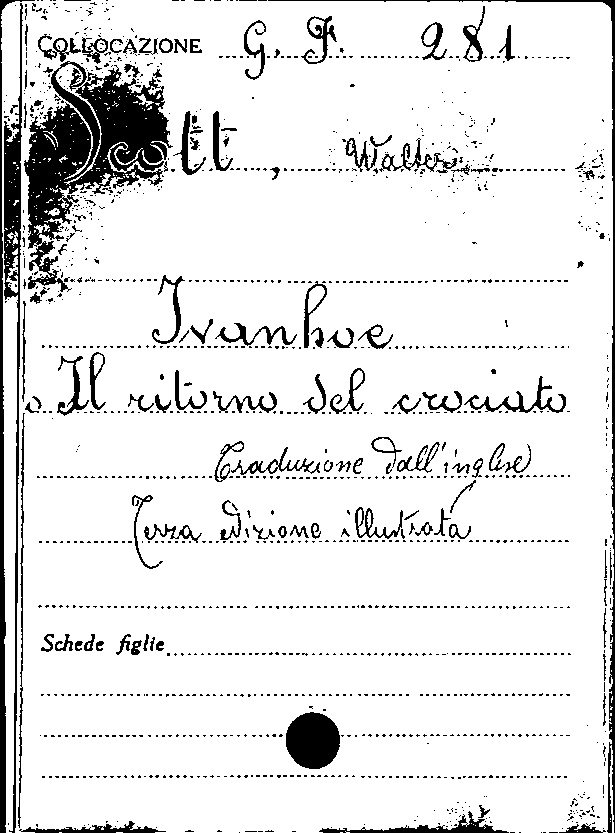 COLLOCAZIONE G. F. 281
Scott, Walter
Ivanhoe
o Il ritorno del crociato
Traduzione dall'inglese
Terza edizione illustrata
Schede figlie